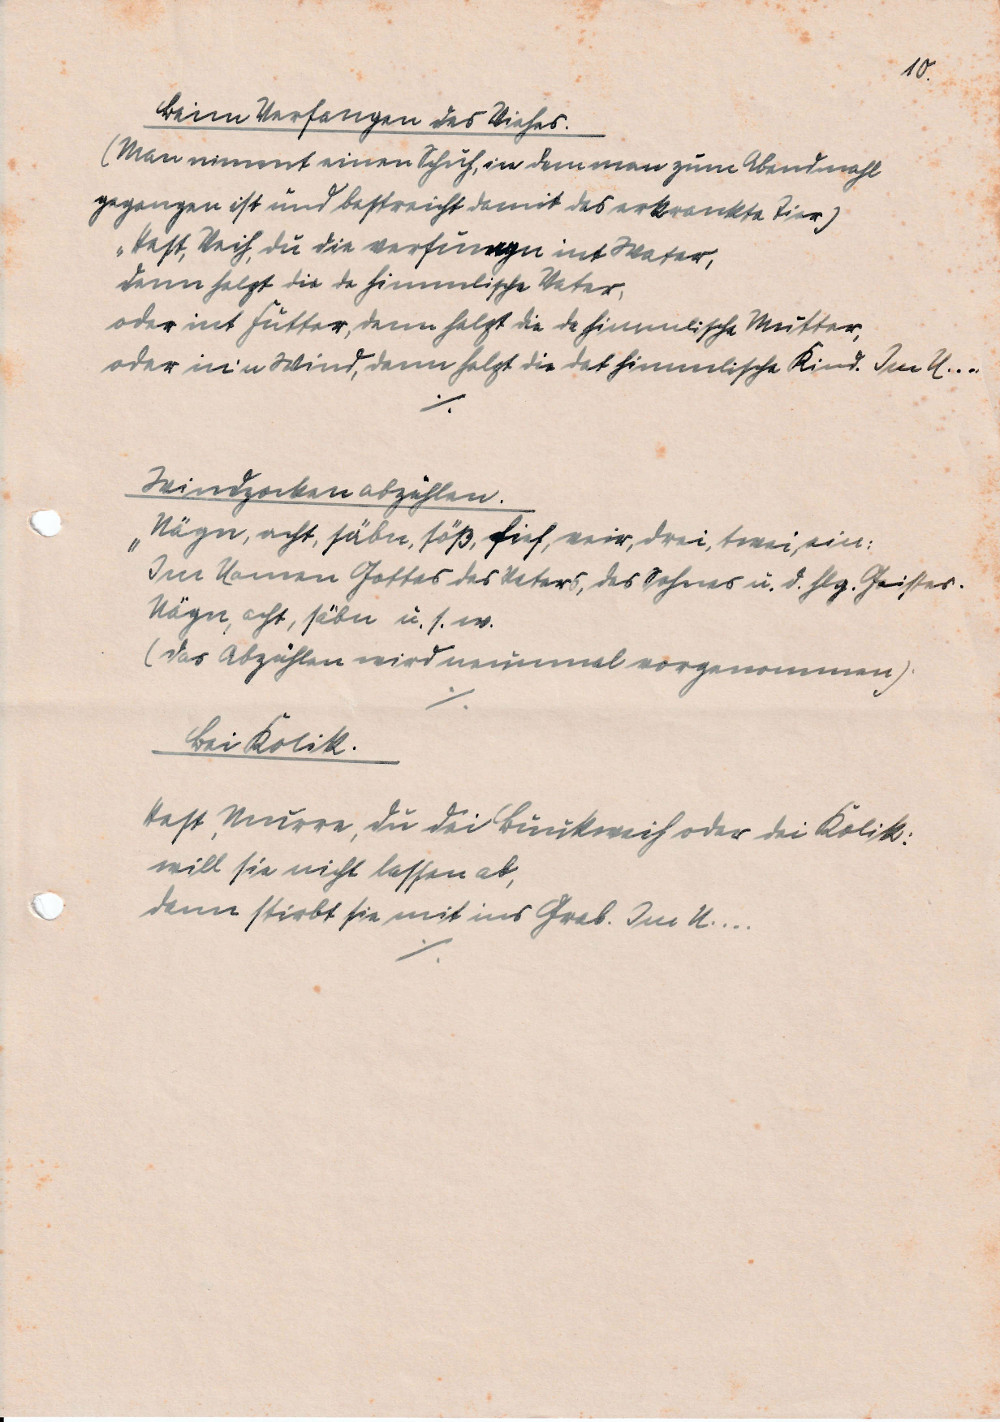 10.
Beim Verfangen des Viehes.
(Man nimmt einen Schuh, in dem man zum Abendmahl
gegangen ist und bestreicht damit das erkrankte Tier)
"Hast, Veih, du die verfungn int Water,
denn helpt die de himmlische Vater,
oder int Futter, denn helpt die de himmlische Mutter,
oder in'n Wind, denn helpt die dat himmlische Kind. Im N....
./.
Windpocken abzählen.
"Nägn, acht, säbn, söß, fief, veir, drei, twei, ein:
Im Namen Gottes des Vaters, des Sohnes u. d. hlg. Geistes.
Nägn, acht, säbn u. s. w.
(das Abzählen wird neunmal vorgenommen)
./.
Bei Kolik.
Hast, Murre, du dei Buukweih oder dei Kolik:
will sie nicht lassen ab,
dann stirbt sie mit ins Grab. Im N....
./.